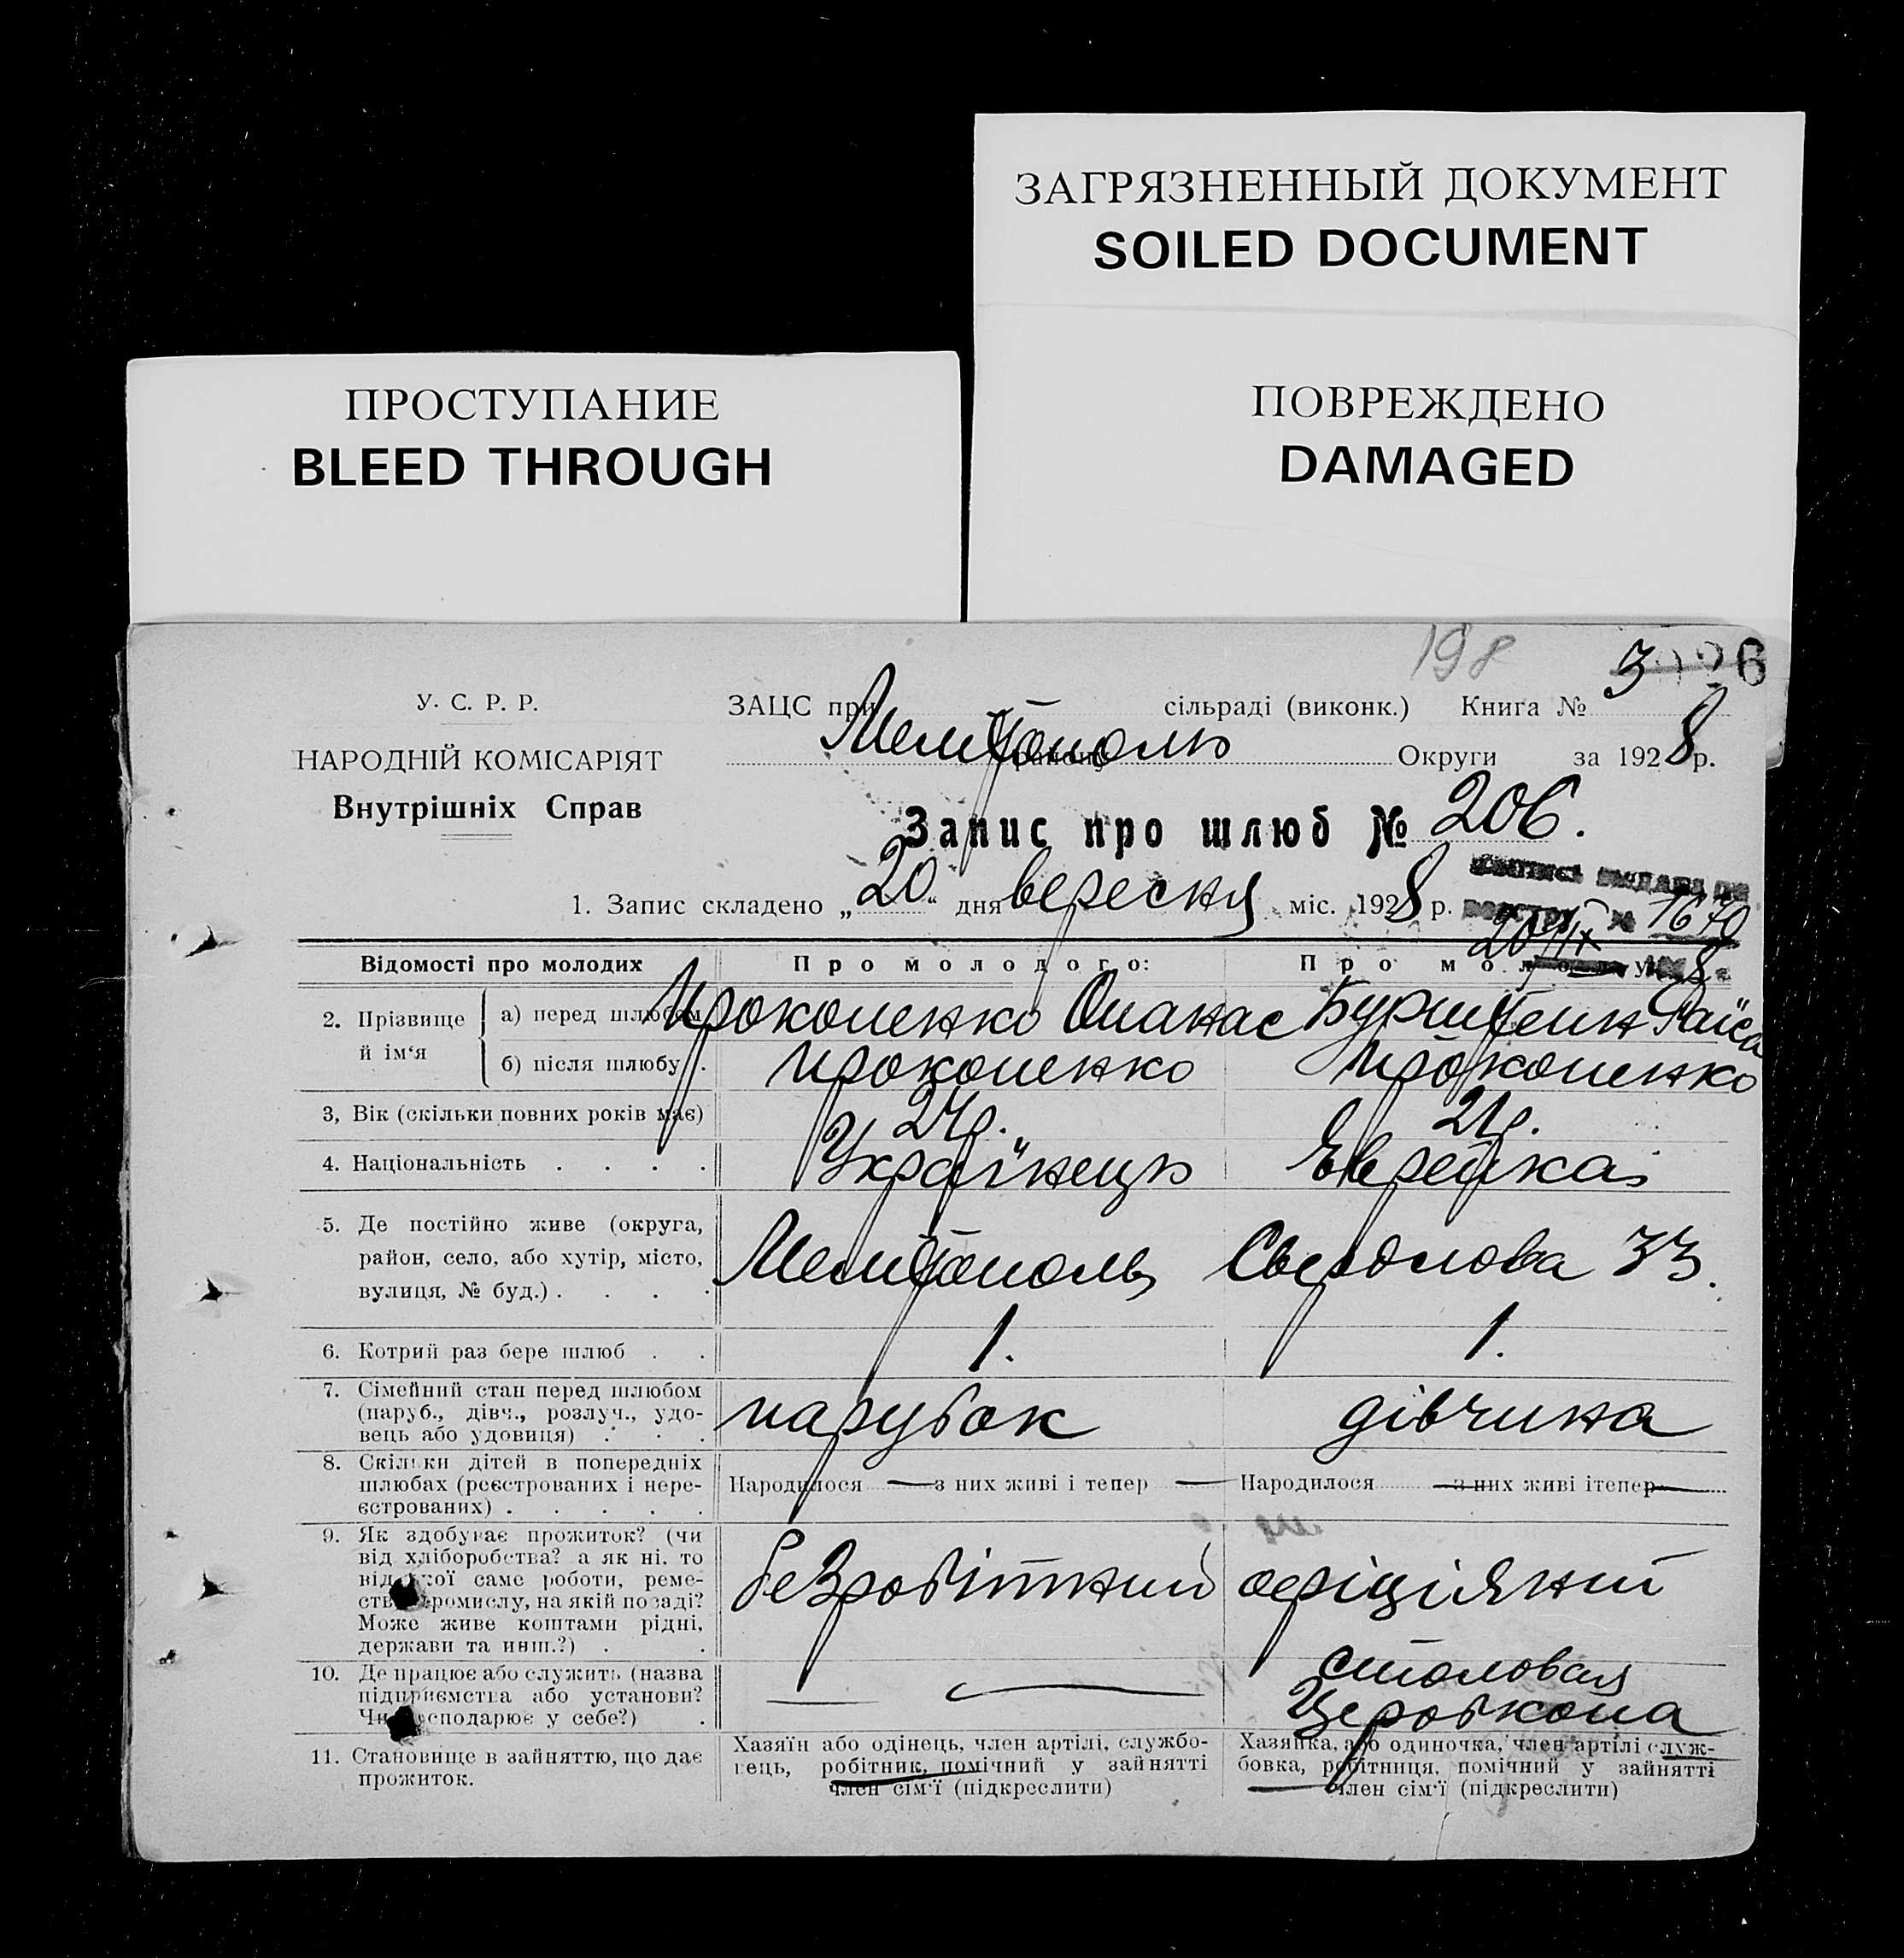 ЗАГРЯЗНЕННЫЙ ДОКУМЕНТ
SOILED DOCUMENT
ПРОСТУПАНИЕ
BLEED THROUGH
ПОВРЕЖДЕНО
DAMAGED
198
3
6
У. С. Р. Р.
НАРОДНІЙ КОМІСАРІЯТ
Внутрішніх Справ
ЗАЦС при Мелітополь сільраді (виконк.) Книга №
району Округи за 1928 р.
Запис про шлюб № 206.
1. Запис складено „20“ дня вересня міс. 1928 р.
1670
20/IX
8
Відомості про молодих
Про молодого:
Про молоду
2. Прізвище й ім‘я
а) перед шлюбом Прокопенко Опанас Бурштейн Раїса
б) після шлюбу . Прокопенко Прокопенко
3, Вік (скільки повних років має) 24р. 21р.
4. Національність . . . . Українець Єврейка
5. Де постійно живе (округа,
район, село, або хутір, місто,
вулиця, № буд.) . . . .
Мелітополь Свердлова 33.
6. Котрий раз бере шлюб . . 1. 1.
7. Сімейний стан перед шлюбом
(паруб., дівч., розлуч., удо-
вець або удовиця) . . .
парубок дівчина
8. Скільки дітей в попередніх
шлюбах (реєстрованих і нере-
єстрованих) . . . . .
Народилося — з них живі і тепер — Народилося — з них живі ітепер —
9. Як здобуває прожиток? (чи
від хліборобства? а як ні. то
від якої саме роботи, реме-
ства, промислу, на якій посаді?
Може живе коштами рідні,
держави та инш.?) . .
безробітний офіціяний
10. Де працює або служить (назва
підприємства або установи?
Чи господарює у себе?) .
— —
столовая
Церобкопа
11. Становище в зайняттю, що дає
прожиток.
Хазяїн або одінець, член артілі, службо-
вець, робітник, помічний у зайнятті
член сім‘ї (підкреслити)
Хазяйка, або одиночка, член артілі служ-
бовка, робітниця, помічний у зайнятті
член сім‘ї (підкреслити)